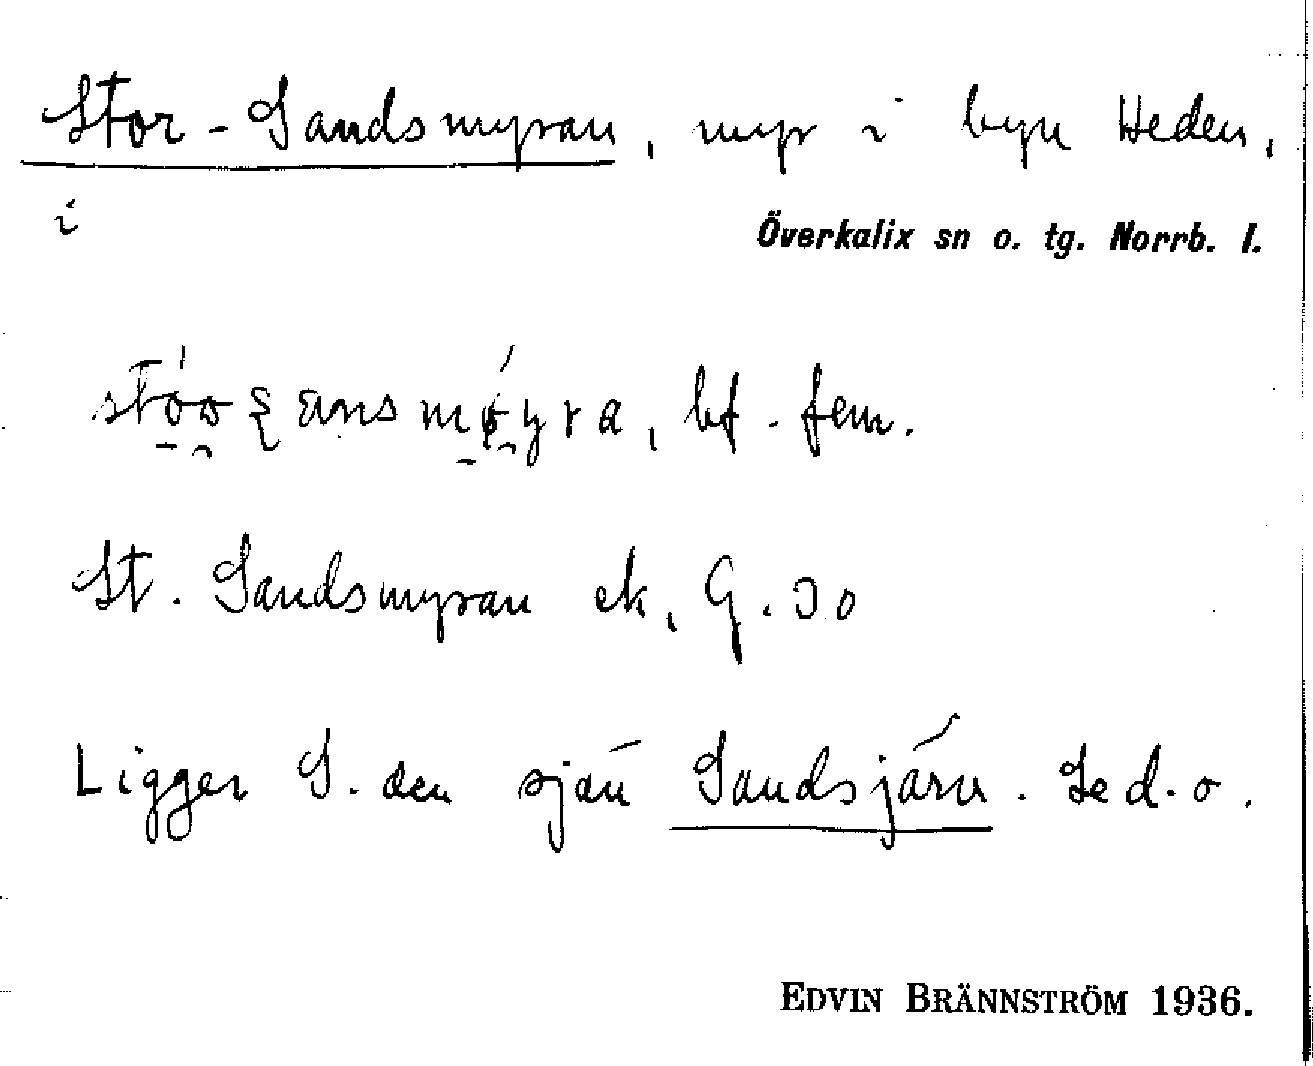 Stor-Sandsmyran, myr i byn Heden,
i
Överkalix sn o. tg. Norrb. l.
bf. fem.
St. Sandsmyran ek, G. 30
Ligger S. den sjön Sandsjärv. Se d.o.
EDVIN BRÄNNSTRÖM 1936.